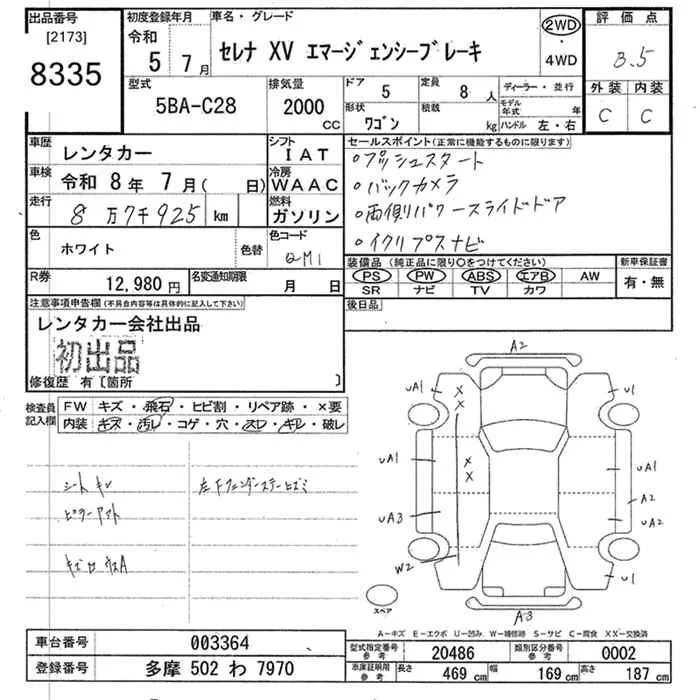 出品番号
[2173]
8335
初度登録年月
令和
5 7月
車名・グレード
セレナ XV エマージェンシーブレーキ
2WD
・
4WD
評価点
3.5
外装 内装
C C
型式
5BA-C28
排気量
2000
CC
ドア
5
定員
8 人
形状
ワゴン
積載
kg
ディーラー・並行
モデル年式 年
ハンドル 左・右
車歴
レンタカー
シフト
IAT
車検
令和 8年 7月( 日)
冷房
WAAC
走行
8万7千925 km
燃料
ガソリン
色
ホワイト
色替
色コード
QM1
R券
12,980 円
名変通知期限
月 日
セールスポイント(正常に機能するものに限ります)
○プッシュスタート
○バックカメラ
○両側パワースライドドア
○イクリプスナビ
装備品(純正品に限り○をつけてください)
PS PW ABS エアB AW
SR ナビ TV カワ
新車保証書
有・無
後日品
注意事項申告欄(不具合内容等は具体的に記入して下さい)
レンタカー会社出品
初出品
修復歴 有〔箇所 〕
検査員
記入欄
FW キズ・飛石・ヒビ割・リペア跡・×要
内装 キズ・汚レ・コゲ・穴・スレ・キレ・破レ
シートキレ
左Fフェンダーステーヒズミ
A2
UA1
U1
UA1
UA1
A2
UA3
UA2
W2
U1
A3
スペア
A-キズ E-エクボ U-凹み W-補修跡 S-サビ C-腐食 XX-交換済
車台番号
003364
登録番号
多摩 502 わ 7970
型式指定番号
参考
20486
類別区分番号
参考
0002
車庫証明用
参考
長さ
469 cm
幅
169 cm
高さ
187 cm